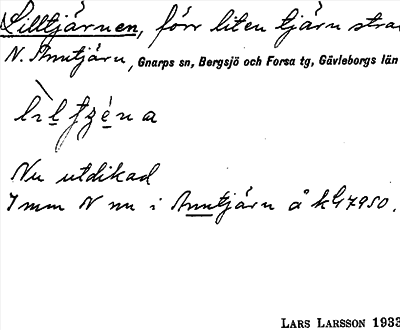 Lilltjärnen, förr liten tjärn stra
N. Anntjärn, Gnarps sn, Bergsjö och Forsa tg, Gävleborgs län
Nu utdikad
7 mm N nn i Anntjärn å k G7950.
LARS LARSSON 1933